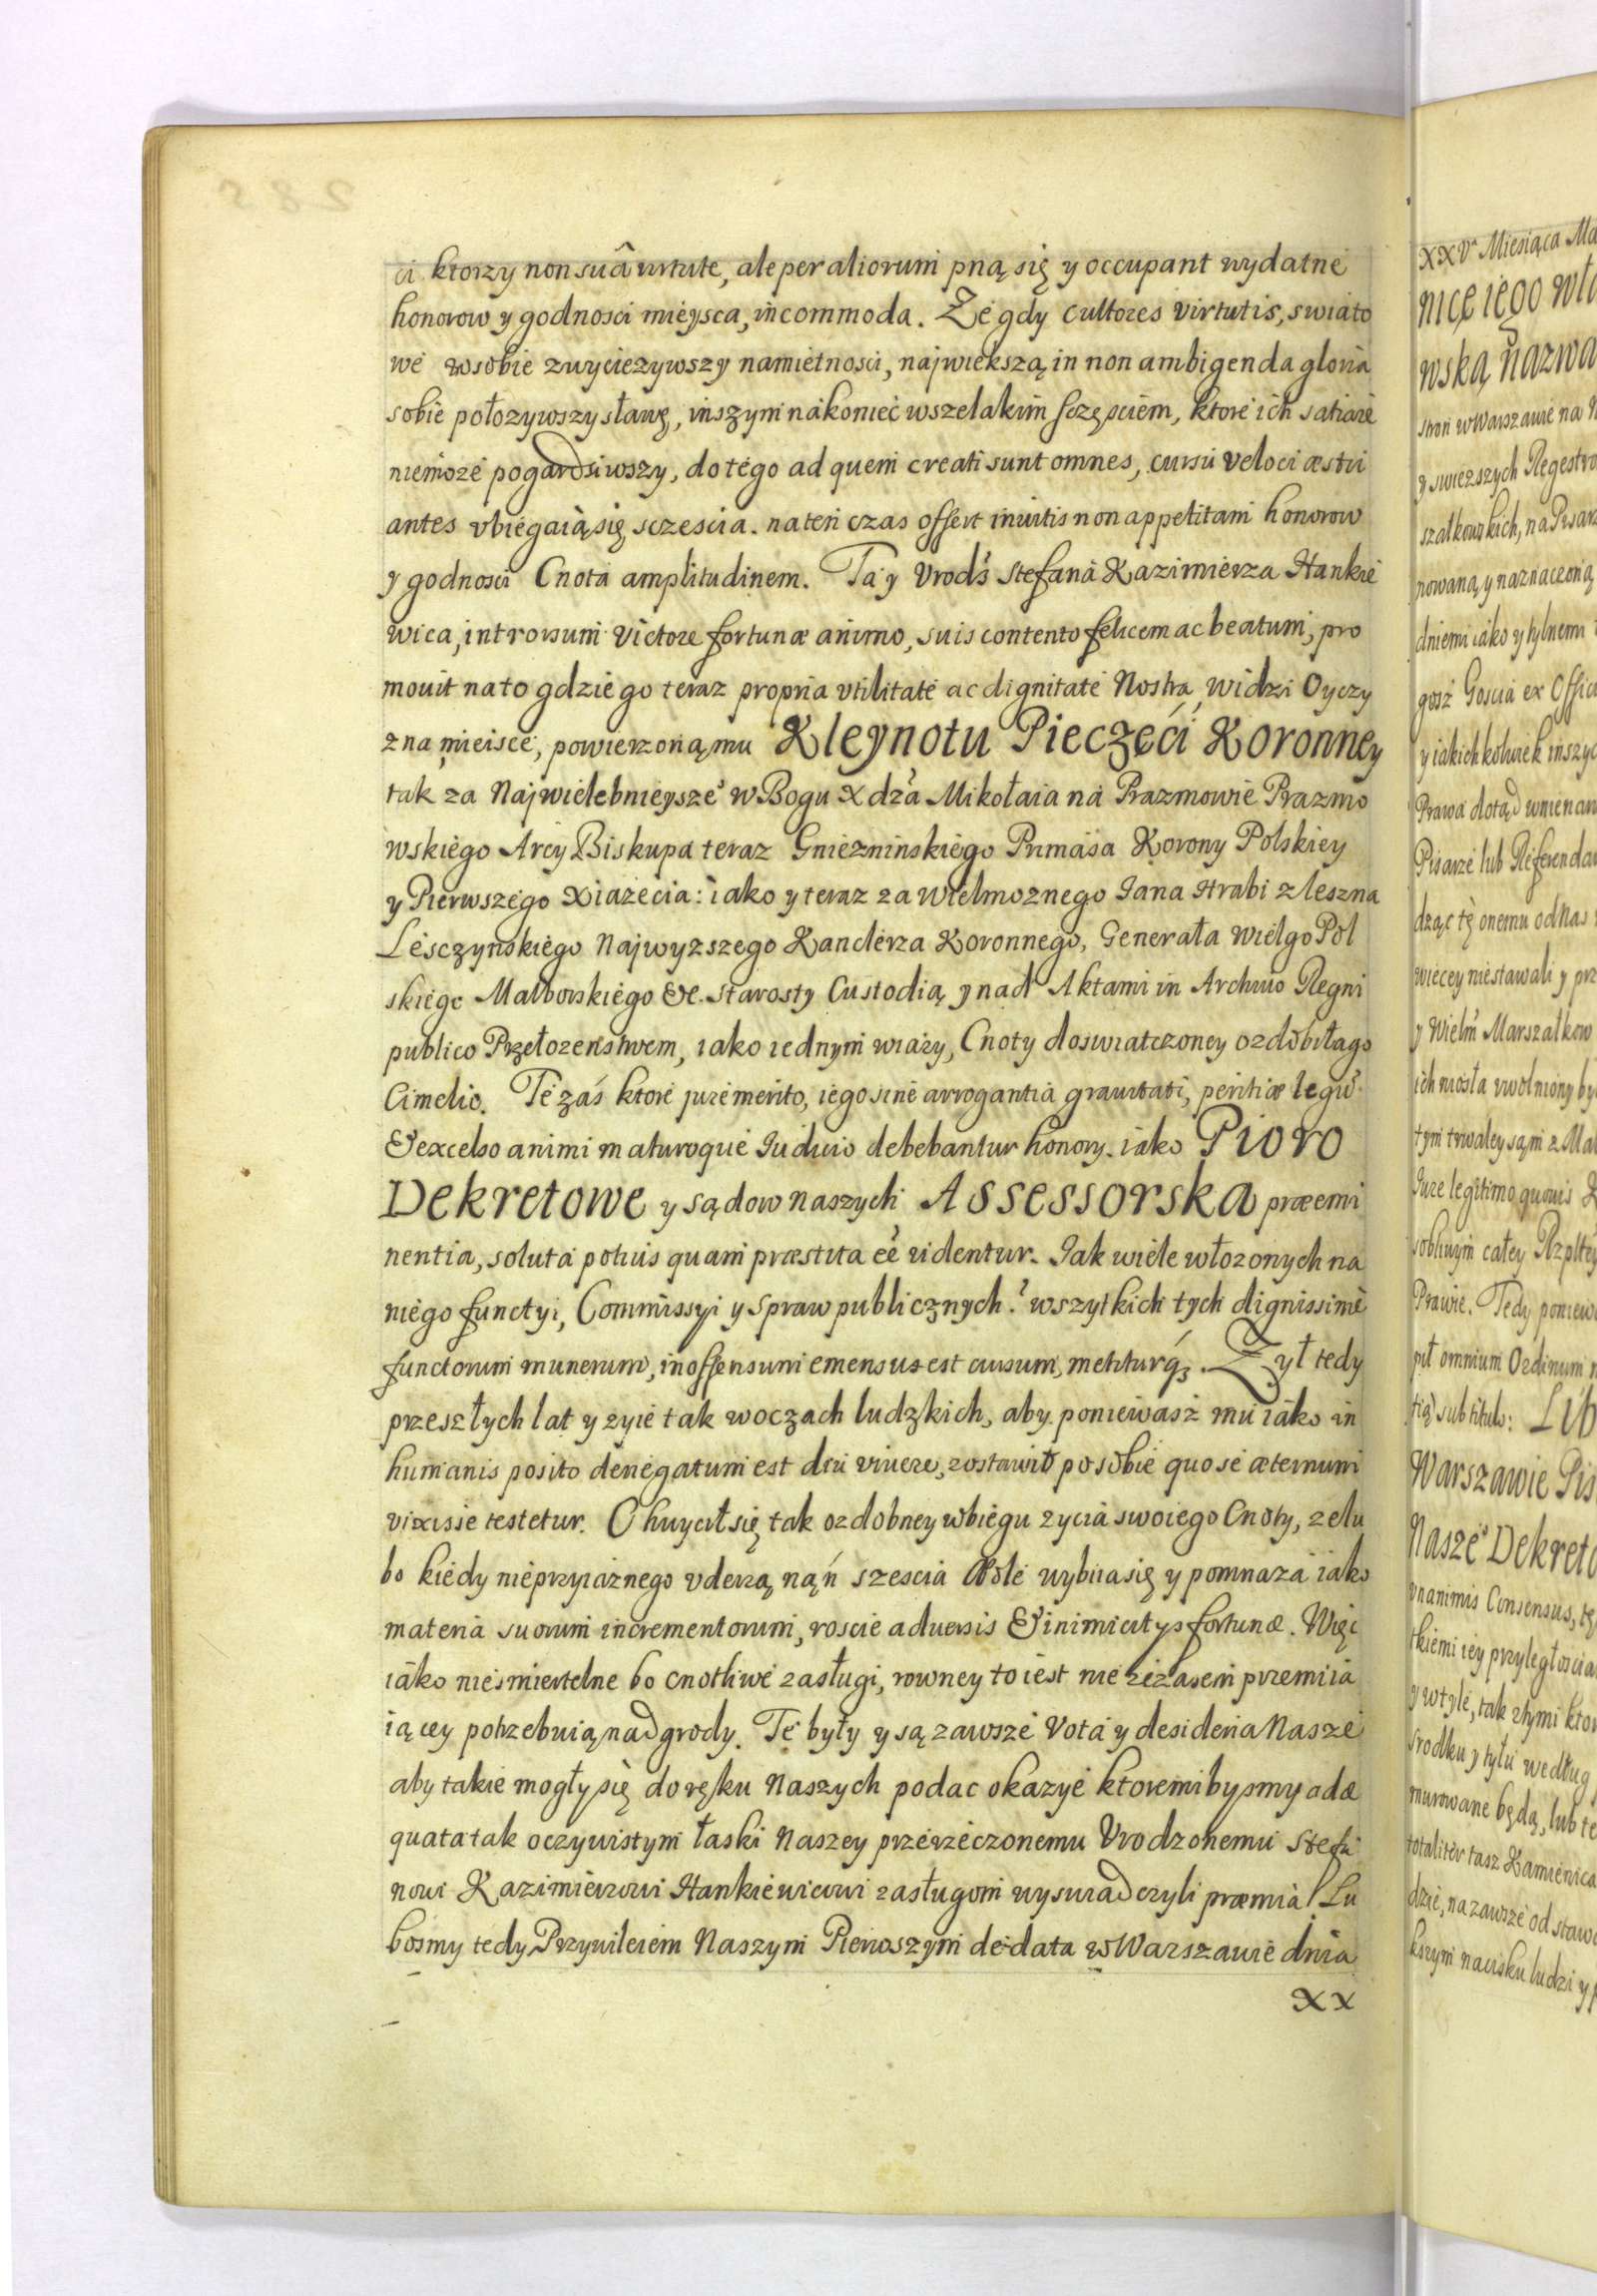 ci ktorzy non suâ virtute, ale per aliorum pną się y occupant wydatne
honorow y godnosci mieysca, incommoda. Że gdy cultores virtutis, swiato
we w sobie zwyciezywszy namiętnosci, największą in non ambigenda gloria
sobie położywszy sławę, inszym nakoniec wszelakim szczęsciem, ktore ich satiare
niemoże pogardziwszy, do tego ad quem creati sunt omnes, cursu veloci æstu
antes vbiegaią się sczescia. na ten czas offert invitis non appetitam honorow
y godnosci Cnota amplitudinem. Ta y Vrodź Stefana Kazimierza Hankie
wica, introrsum victore fortunæ animo, suis contento felicem ac beatum, pro
mouit na to gdzie go teraz propria vtilitate ac dignitate Nostra, widzi Oyczy
zna mieisce, powierzoną mu Kleynotu Pieczęći Koronney
tak za Najwielebnieysze° w Bogu Xdza Mikołaia na Prazmowie Prazmo
wskiego Arcy Biskupa teraz Gnieznińskiego Primasa Korony Polskiey
y Pierwszego Xiażecia: iako y teraz za Wielmożnego Jana Hrabi z Leszna
Lesczyńskiego Najwyzszego Kanclerza Koronnego, Generała Wielgo Pol
skiego Malborskiego &c. Starosty Custodią y nad Aktami in Archivo Regni
publico Przełożeństwem, iako iednym wiaży, Cnoty doswiatczoney ozdobiła go
Cimelio. Te zaś ktore jure merito, iego sine arrogantia grauitati, peritiæ legū
& excelso animi maturoque Judicio debebantur honory. iako Pioro
Dekretowe y sądow naszych Assessorska præemi
nentia, soluta potius quam præstita eē videntur. Jak wiele włożonych na
niego functyi, Commissyi y Spraw publicznych? wszytkich tych dignissimè
functorum munerum, inoffensum emensus est cursum, metiturq3. Żył tedy
przeszłych lat y żyie tak w oczach ludzkich, aby poniewasż mu iako in
humanis posito denegatum est diu vivere, zostawił po sobie quo se æternum
vixisse testetur. Chwycił się tak ozdobney w biegu życia swoiego Cnoty, z elu
bo kiedy nieprzyiaznego vderzą nąń szescia wybiia się y pomnaża iako
materia suorum incrementorum, roscie aduersis & inimicitys fortunæ. Więc
iako nieśmiertelne bo cnotliwe zasługi, rowney to iest nie zczasem przemiia
iącey potrzebuią nadgrody. Te były y są zawsze Vota y desideria Nasze
aby takie mogły się do ręku Naszych podac okazye ktoremibysmy adæ
quata tak oczywistym łaski Naszey przerzeczonemu Vrodzonemu Stefa
nowi Kazimierzowi Hankiewicowi zasługom wyswiadczyli præmia! Lu
bosmy tedy Przywileiem Naszym Pierwszym de data w Warszawie dnia
XX
XXV Miesiąca Ma
nicę iego wła
wską nazwa
stron w Warszawie na
y swieższych Regestro
szałkowskich, na Pisar
nowaną y naznaczoną
dniemi iako y tylnemi
gosż Goscia ex Offici
y iakichkolwiek inszyc
Prawa dotąd
Pisarze lub Referendar
dząc tę onemu od Nas
więcey niestawali y prz
y Wielm Marszałkow
ich niosła vwolniony by
tym trwaley sąm z Ma
Jure legitimo quouis
sobliwym całey Rzpltey
Prawie. Tedy poniew
pił omnium Ordinum
tią sub titulo: Lib
Warszawie Pis
Nasze° Dekreto
vnanimis Consensus, tę
tkiemi iey przyległoscia
y w tyle, tak z tymi ktor
srodku y tyłu według
murowane będą, lub te
totaliter tasz Kamienica
dzie, na zawsze od stawa
kszym nacisku ludzi y p